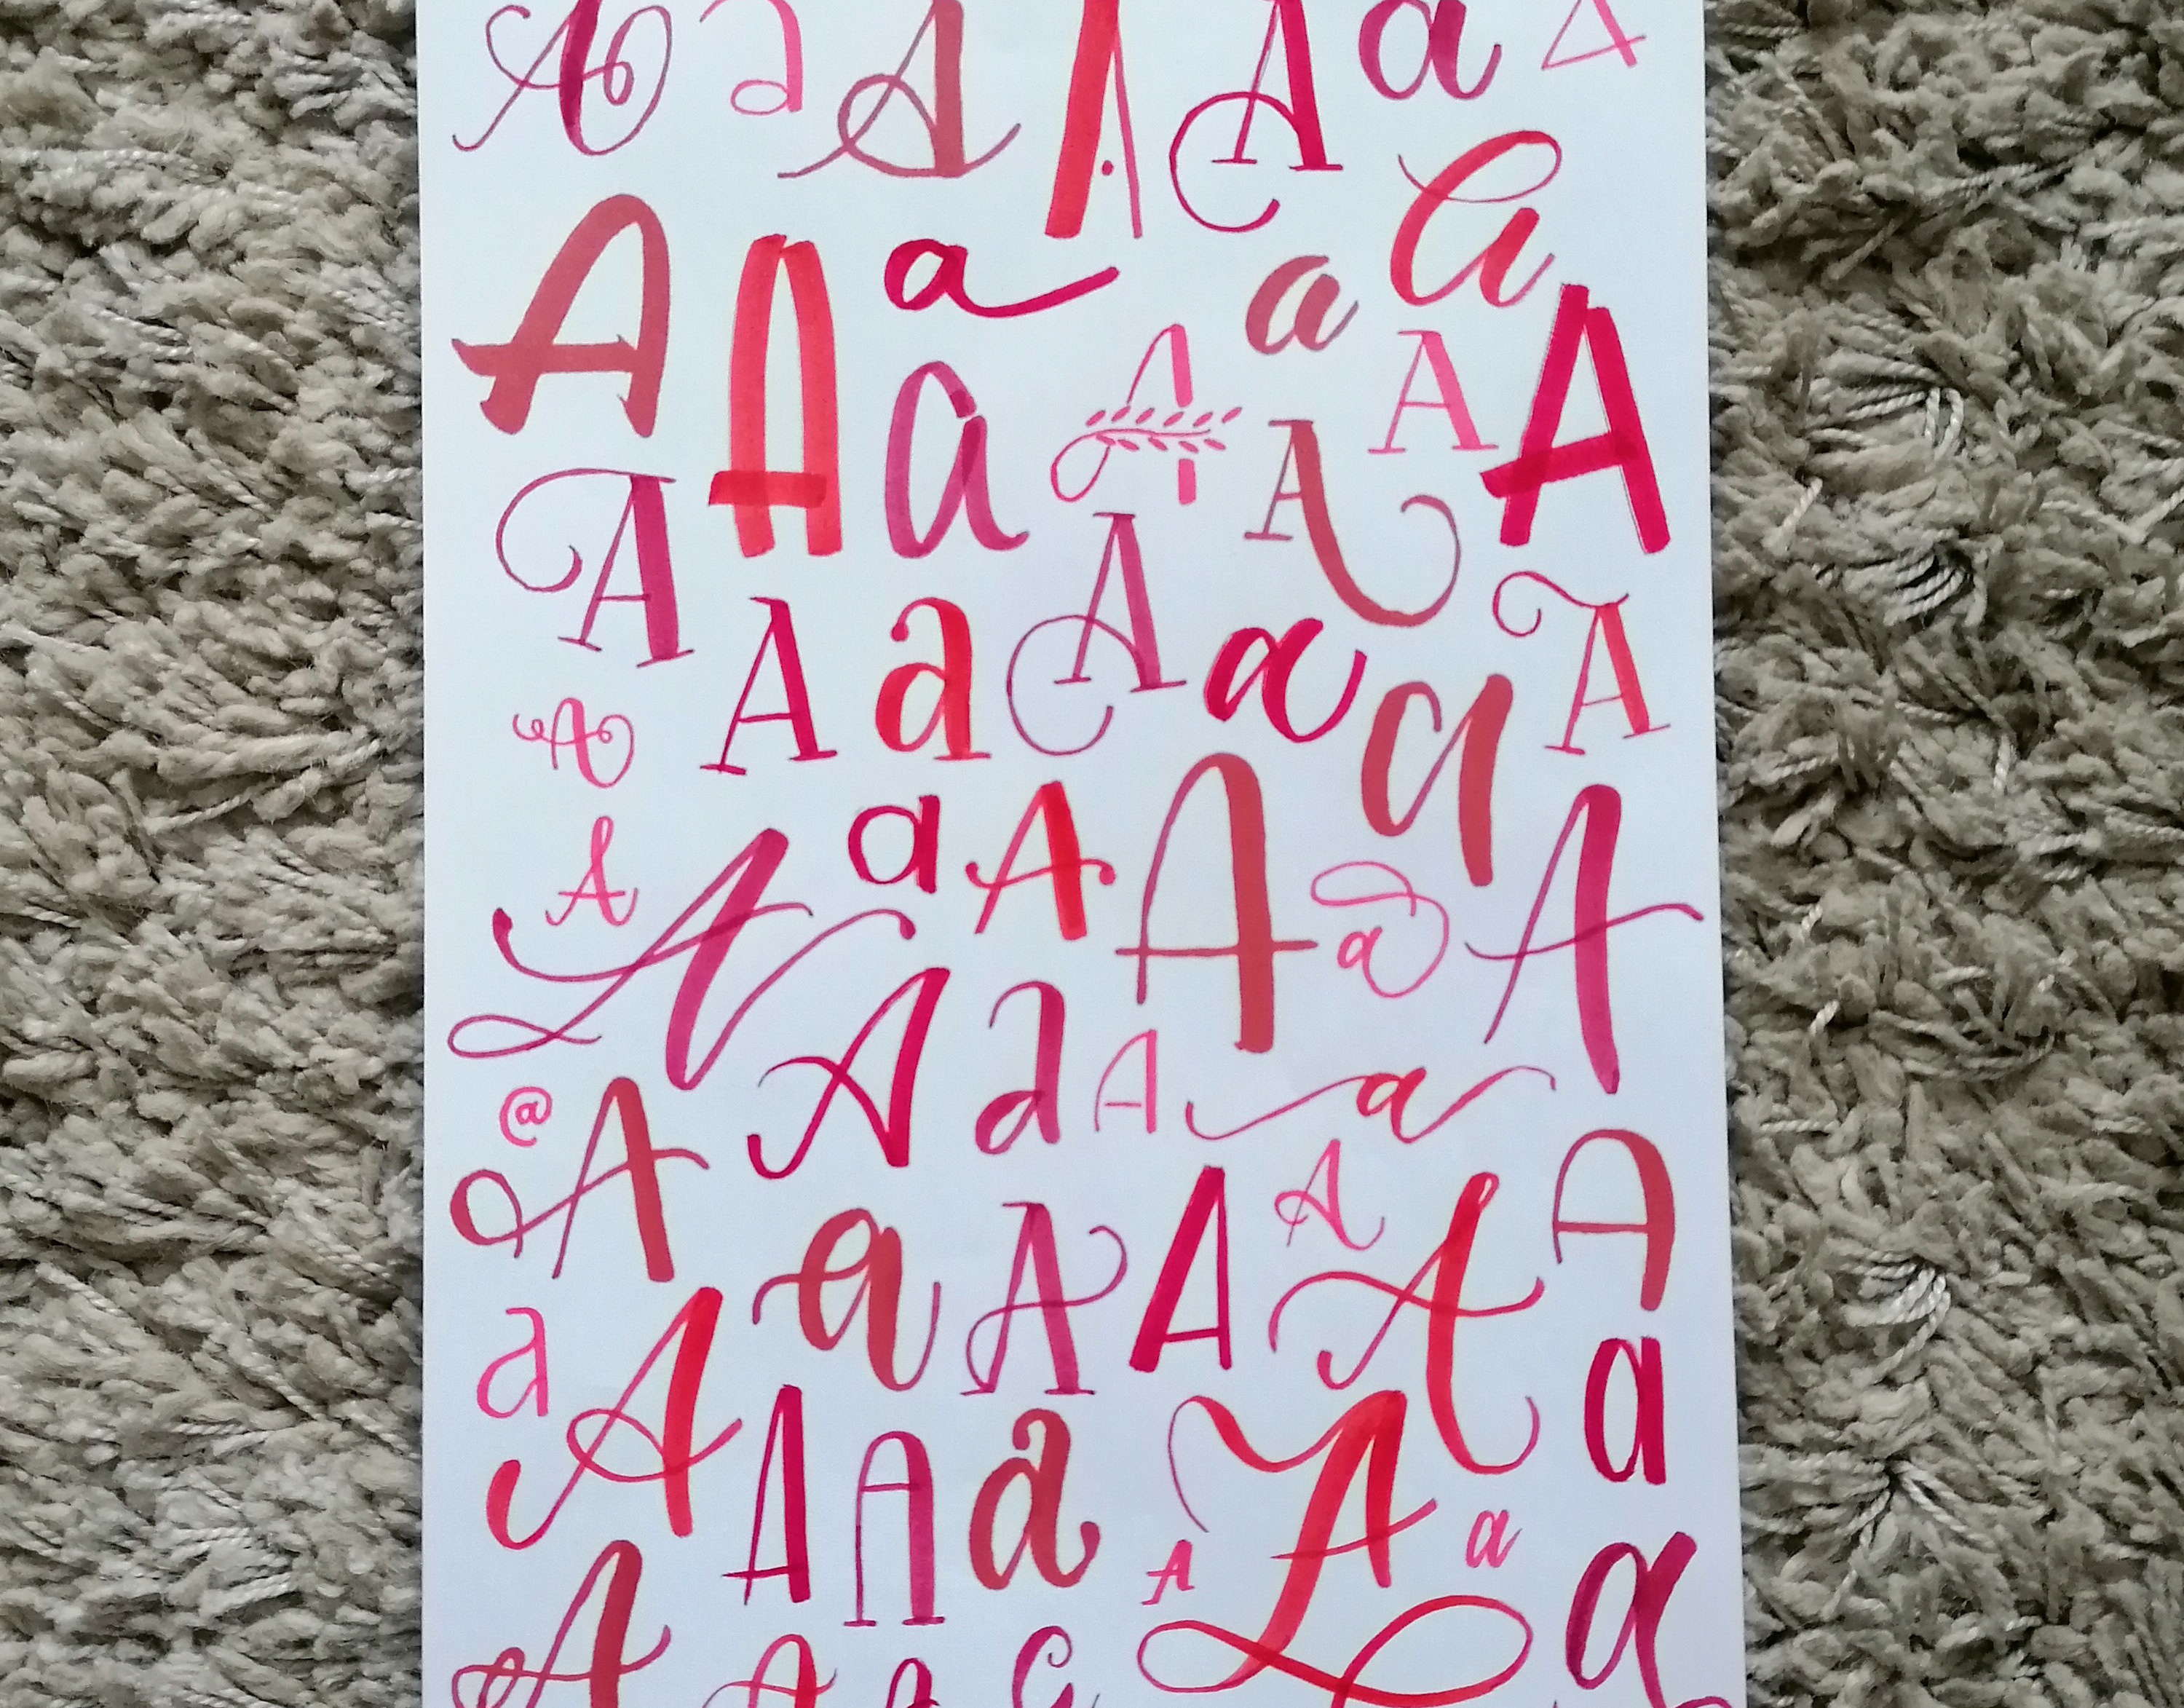 A a A A A a A
a
A A a a
A a A A A A
A A a A a a A
A
A a A A a a A
A A a A a
@ A A A
a A A A a
a A A A a A a
A a
A A A a